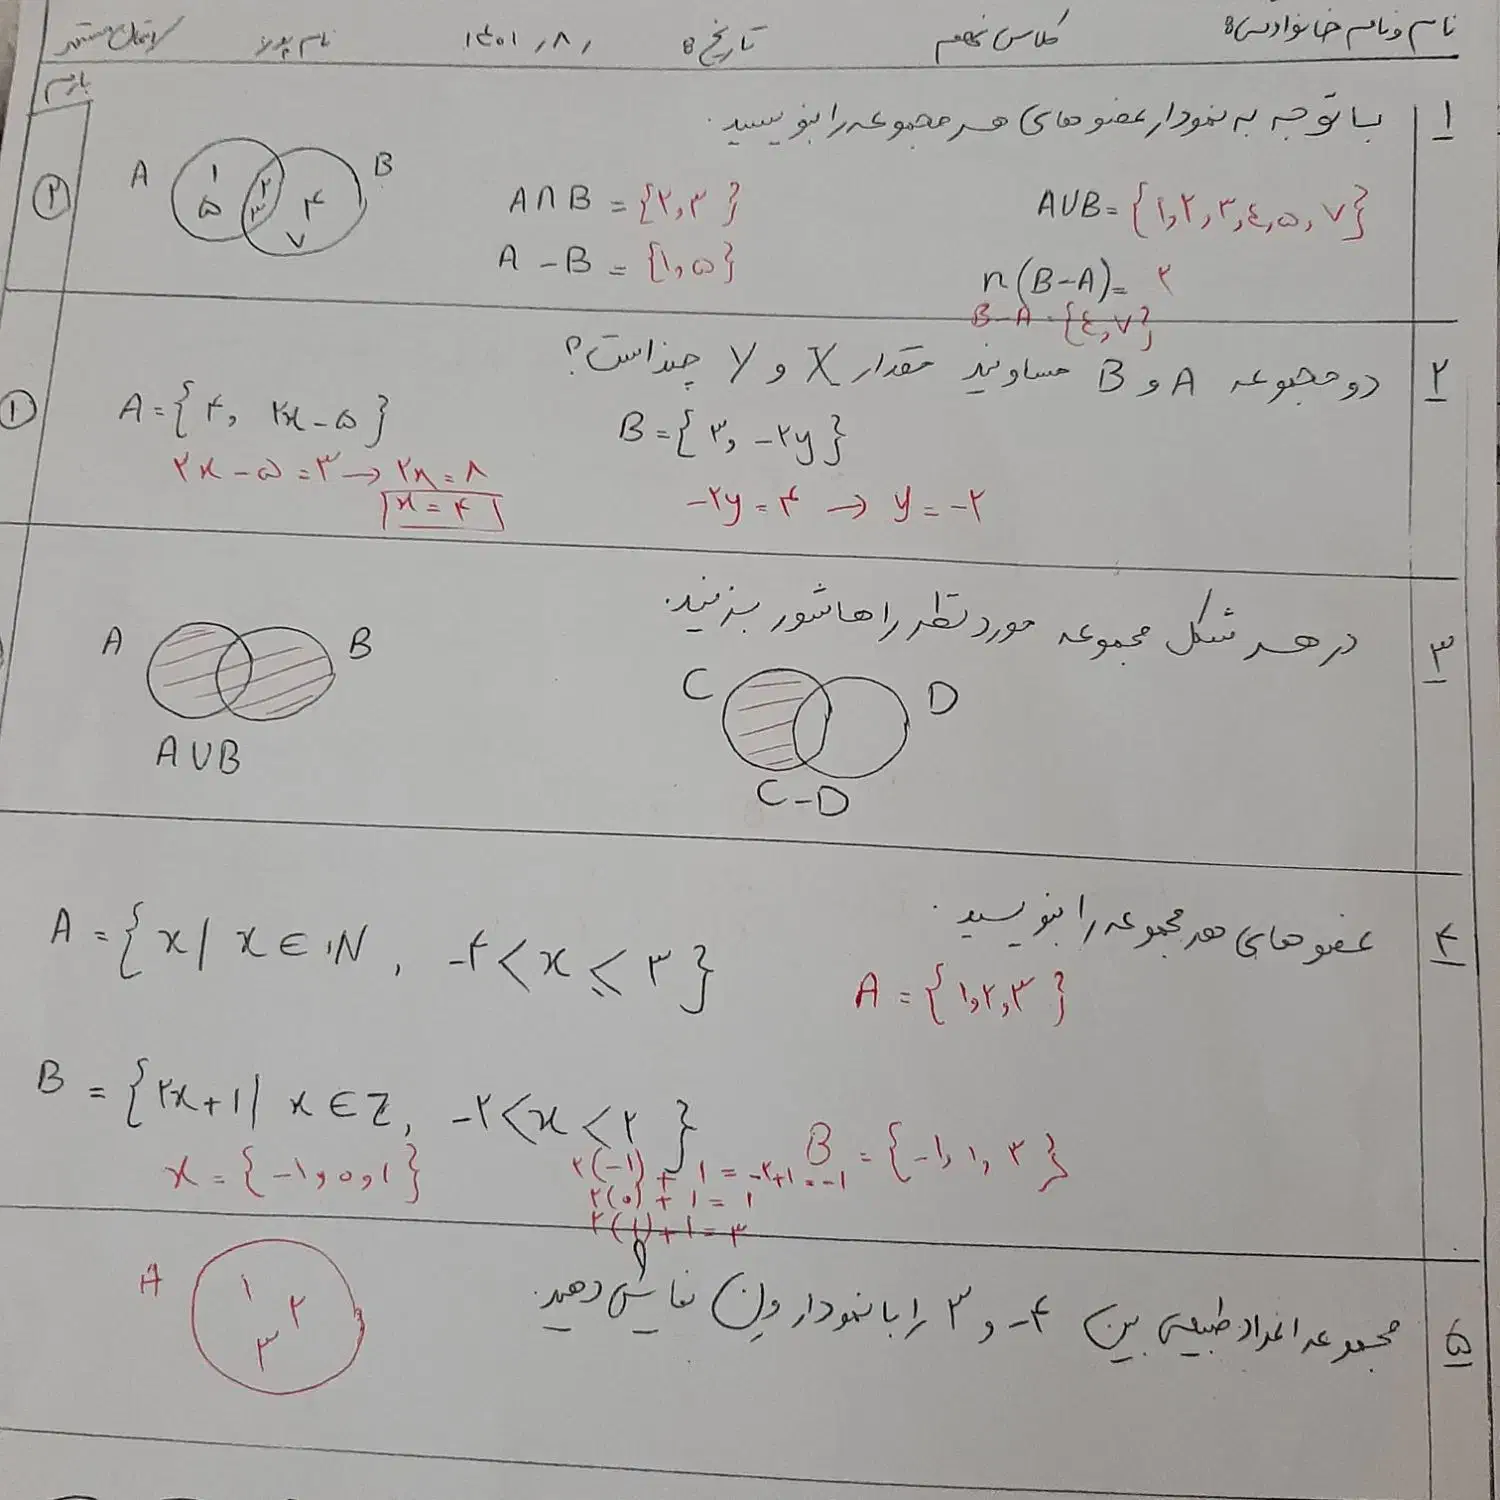 نام و نام خانوادگی: کلاس نهم تاریخ: ۱۴۰۱/۸/ نام پدر:
بارم
۱ با توجه به نمودار عضوهای هر مجموعه را بنویسید.
A ۱ ۵ ۲ ۳ ۴ ۷ B
A∩B = {۲,۳} A∪B = {۱,۲,۳,٤,۵,۷}
A - B = {۱,۵} n(B-A) = ۲
B-A = {٤,۷}
۲
۲ دو مجموعه A و B مساویند مقدار X و Y چند است؟
۱ A = {۴, ۲x-۵} B = {۳, -۲y}
۲x-۵ = ۳ → ۲x = ۸ -۲y = ۴ → y = -۲
x = ۴
۳ در هر شکل مجموعه مورد نظر را هاشور بزنید.
A B C D
A∪B C-D
۴ عضوهای هر مجموعه را بنویسید.
A = {x | x∈IN, -۴<x≤۳} A = {۱,۲,۳}
B = {۲x+۱ | x∈Z, -۲<x<۲} B = {-۱,۱,۳}
x = {-۱,۰,۱} ۲(-۱)+۱ = -۲+۱ = -۱
۲(۰)+۱ = ۱
۲(۱)+۱ = ۳
۵ مجموعه اعداد طبیعی بین ۴- و ۳ را با نمودار ون نمایش دهید.
A ۱ ۲ ۳